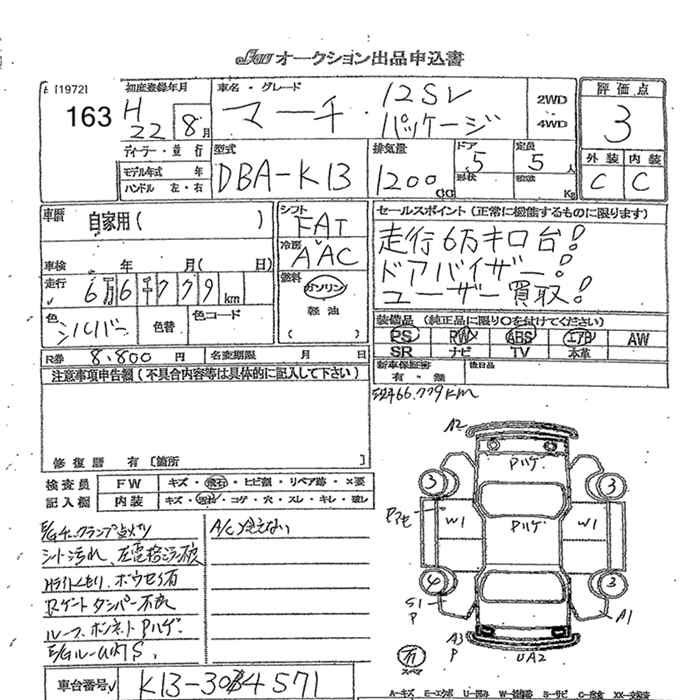 JAU オークション出品申込書
[1972]
163
初度登録年月
H 22 8月
車名・グレード
マーチ・12SV パッケージ
2WD
4WD
評価点
3
外装 内装
C C
ディーラー・並行
モデル年式 年
ハンドル 左・右
型式
DBA-K13
排気量
1200 CC
ドア
5
形状
定員
5 人
積載 Kg
車歴
自家用( )
シフト
FAT
冷房
AAC
燃料
ガソリン
軽油
( )
セールスポイント(正常に機能するものに限ります)
走行6万キロ台!
ドアバイザー!
ユーザー買取!
車検 年 月( 日)
走行
6万6千779km
色
シルバー
色替
色コード
R券 8.800 円
名変期限 月 日
装備品 (純正品に限り○を付けてください)
PS PW ABS エアB AW
SR ナビ TV 本革
新車保証書
有・無
後日品
現状66.779km
注意事項申告欄(不具合内容等は具体的に記入して下さい)
修復歴 有[箇所 ]
検査員
記入欄
FW キズ・飛石・ヒビ割・リペア跡・×要
内装 キズ・汚れ・コゲ・穴・スレ・キレ・破レ
E/Gチェックランプ点灯
A/C冷えない
シート汚れ、左電格ミラー
ルーフ、ボンネットPハゲ.
E/Gルーム
A2
Pハゲ
3
3
W1
Pハゲ
W1
4
3
S1
P
A1
A3
P
UA2
有
スペア
車台番号
K13-304571
A-キズ E-エクボ U-凹み W-補修跡 S-サビ C-腐食 XX-交換済